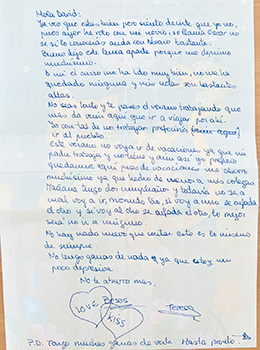 Hola David:
Ya veo que estas bien pero siento decirte que yo no,
pues ayer he roto con mi novio, se llama Cesar no
se si lo conoceras anda con Alvaro bastante.
Bueno dejo este tema aparte porque me deprimo
muchisimo.
A mi el curso me ha ido muy bien, no me ha
quedado ninguna y mis notas son bastantes
altas.
No seas tonto y te pases el verano trabajando que
mas da venir aqui que ir a viajar por ahi.
Yo con tal de no trabajar preferiria
ir al pueblo.
Este verano no voy a ir de vacaciones ya que mi
padre trabaja y no tiene y aun asi yo prefiero
quedarme aqui pues de vacaciones me aburro
muchisimo ya que hecho de menos a mis colegas.
Mañana tengo dos cumpleaños y todavia no se a
cual voy a ir, menudo lio, si voy a uno se enfada
el otro y si voy al otro se enfada el otro, lo mejor
sera no ir a ninguno.
No hay nada nuevo que contar esto es lo mismo
de siempre.
No tengo ganas de nada y ya que estoy un
poco depresiva.
No te aburro mas.
LOVE
Besos
KISS
Teresa
P.D. Tengo muchas ganas de verte. Hasta pronto.